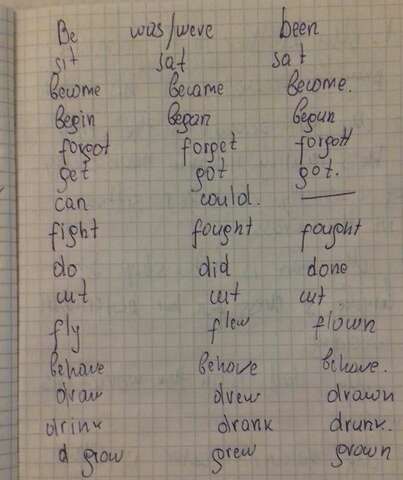 Be was/were been
sit sat sat
become became become.
begin began begun
forgot forget forgott
get got got.
can could. —
fight fought fought
do did done
cut cut cut
fly flew flown
behave behave behave.
draw drew drawn
drink drank drunk.
d grow grew grown